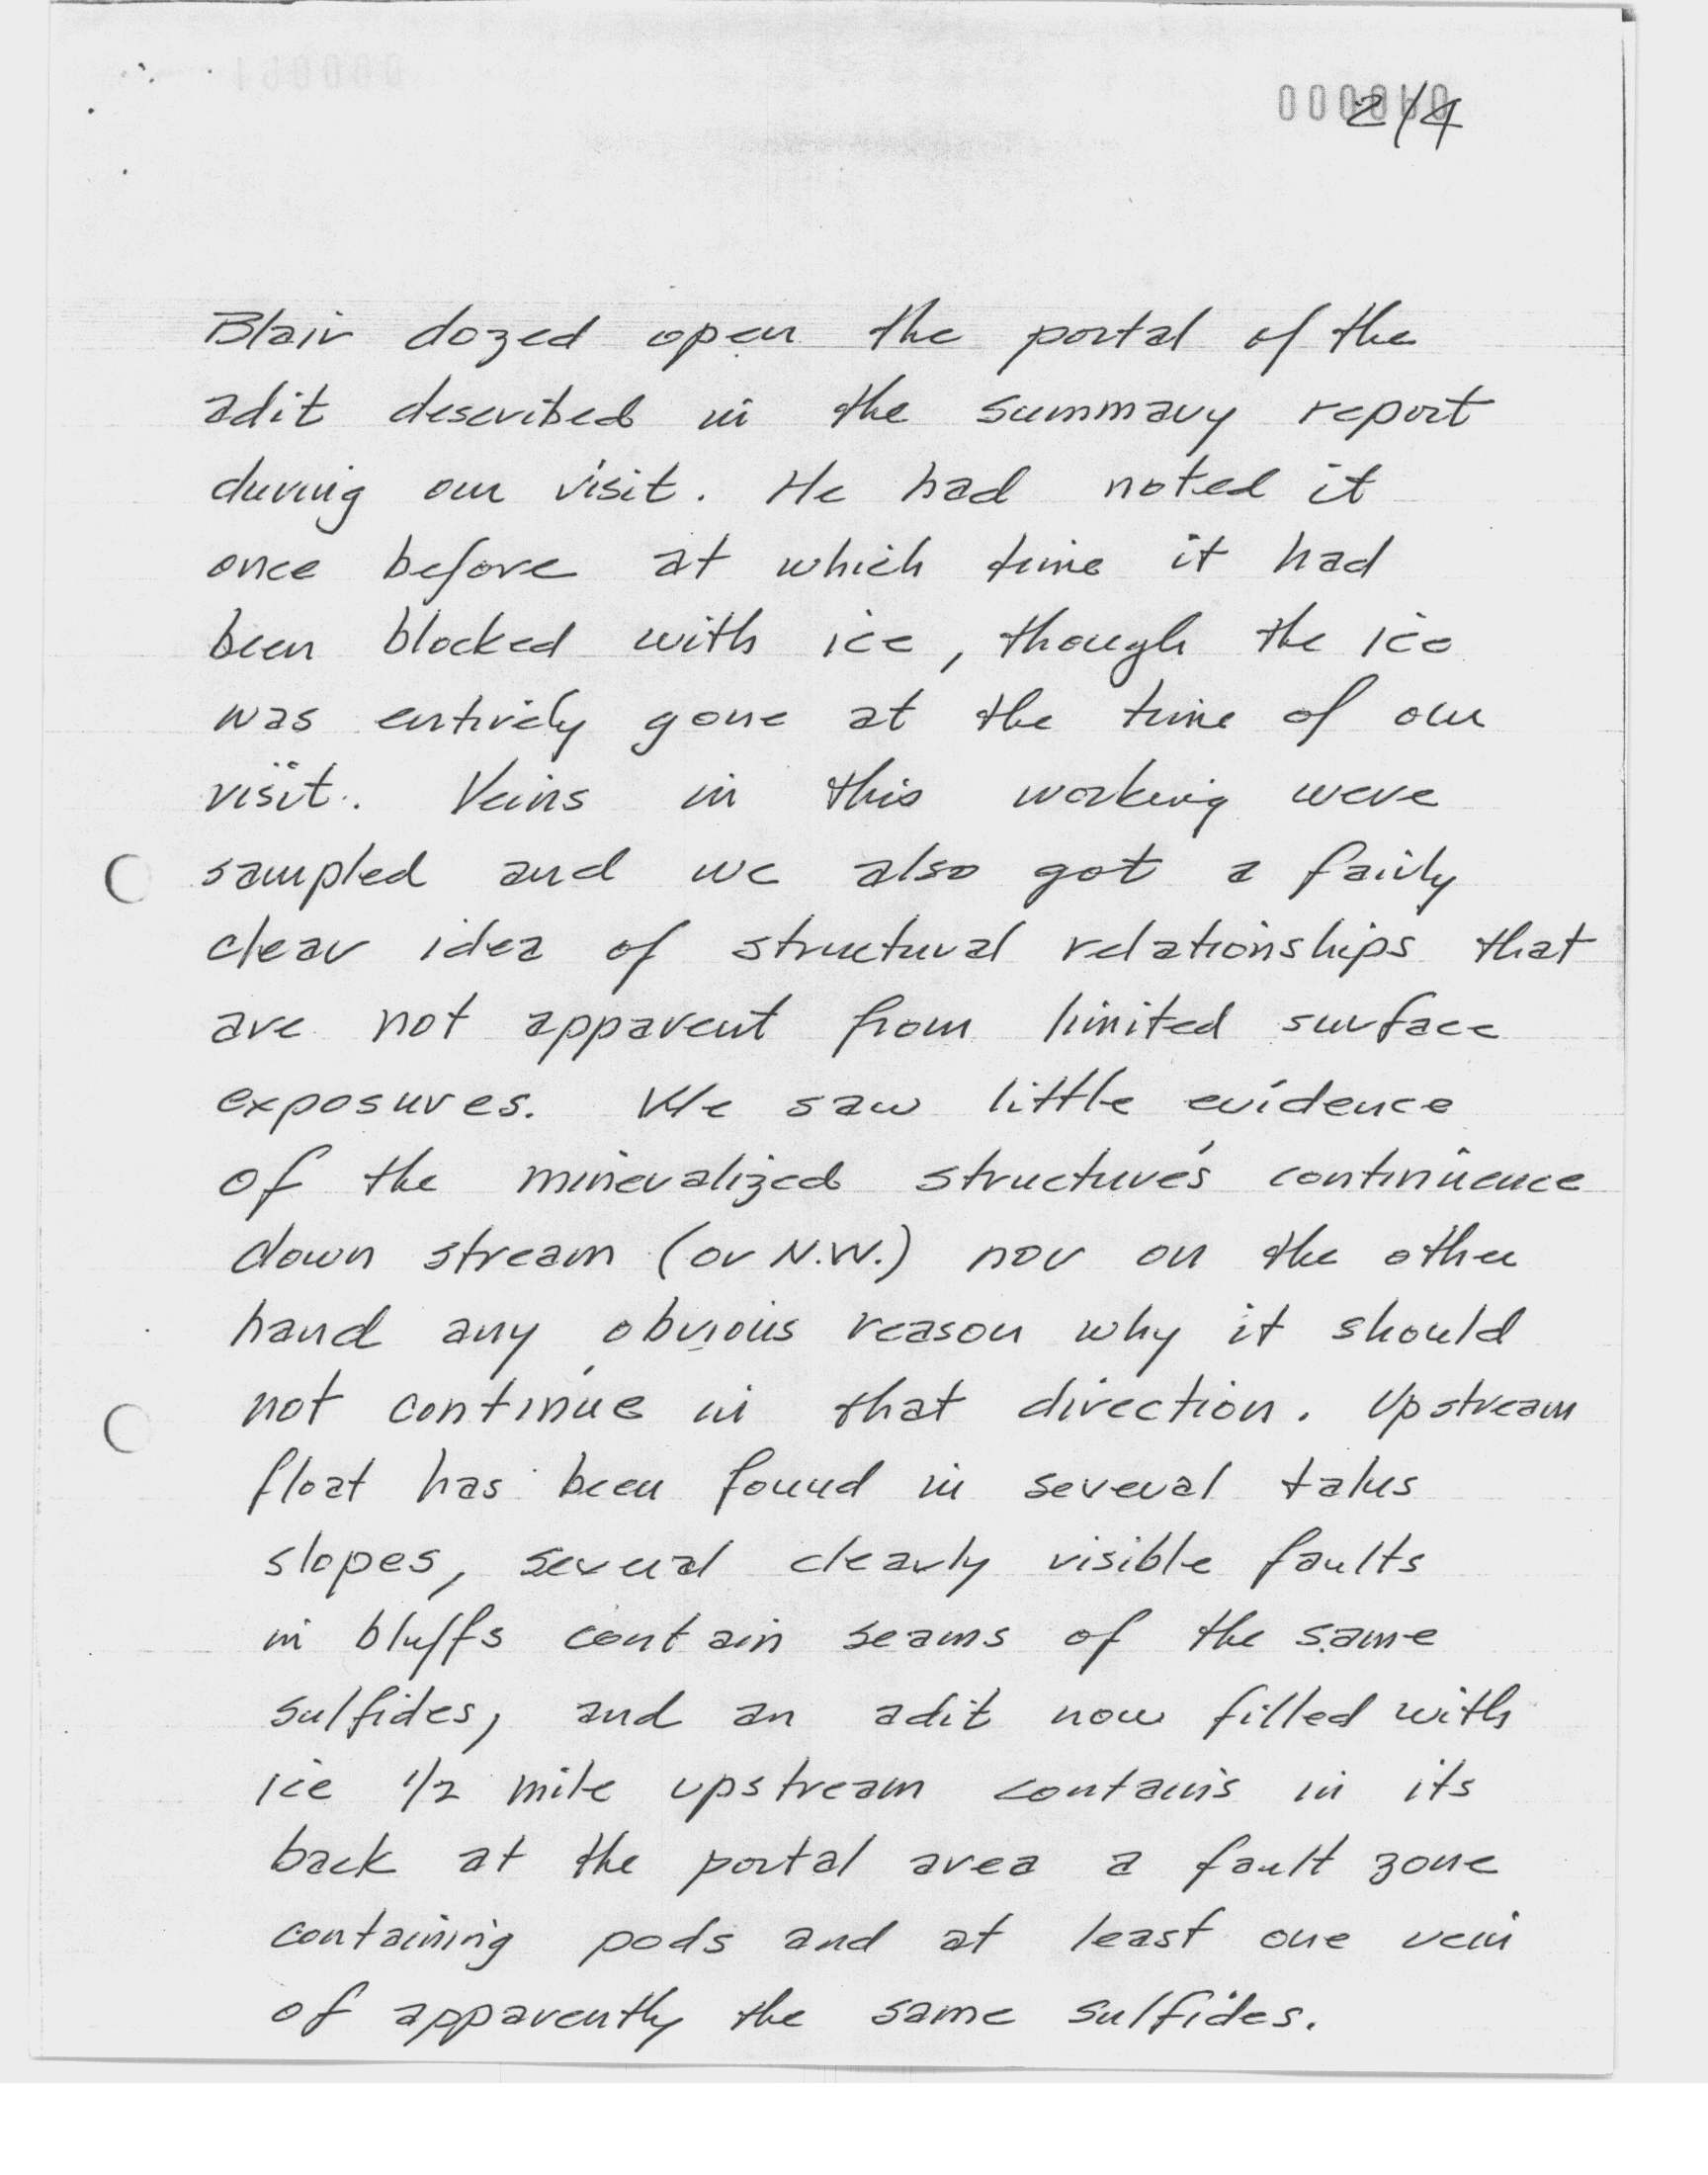 2/4
Blair dozed open the portal of the
adit described in the summary report
during our visit. He had noted it
once before at which time it had
been blocked with ice, though the ice
was entirely gone at the time of our
visit. Veins in this working were
sampled and we also got a fairly
clear idea of structural relationships that
are not apparent from limited surface
exposures. We saw little evidence
of the mineralized structure's continuence
down stream (or N.W.) nor on the other
hand any obvious reason why it should
not continue in that direction. Upstream
float has been found in several talus
slopes, several clearly visible faults
in bluffs contain seams of the same
sulfides, and an adit now filled with
ice 1/2 mile upstream contains in its
back at the portal area a fault zone
containing pods and at least one vein
of apparently the same sulfides.